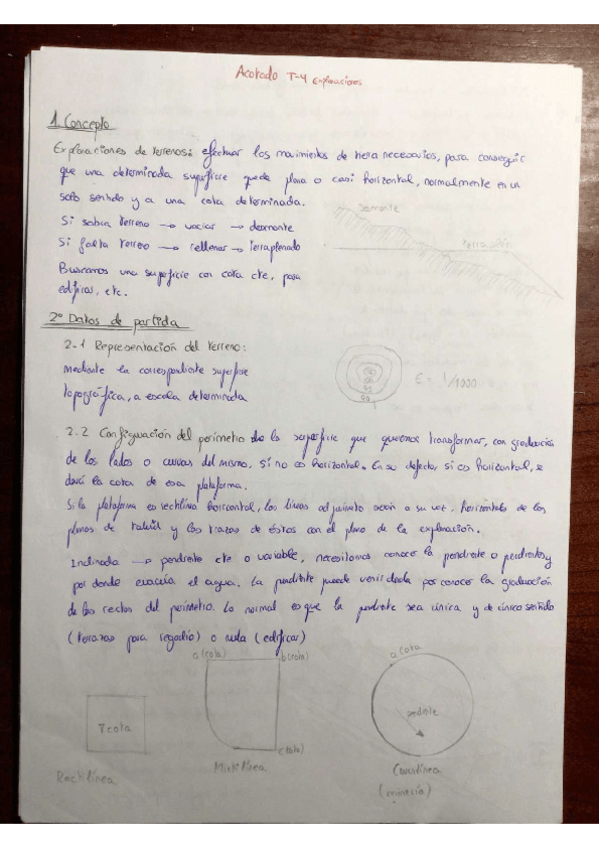 Acotado T-4 Explanaciones
1. Concepto
Explanaciones de terrenos: efectuar los movimientos de tierra necesarios, para conseguir
que una determinada superficie quede plana o casi horizontal, normalmente en un
solo sentido y a una cota determinada.
Si sobra terreno → vaciar → desmonte
Si falta terreno → rellenar → terraplenado
Buscamos una superficie con cota cte, para
edificar, etc.
Desmonte
terraplén
2º Datos de partida
2.1 Representación del terreno:
Mediante la correspondiente superficie
topográfica, a escala determinada
E = 1/1000
2.2 Configuración del perímetro de la superficie que queremos transformar, con graduación
de los lados o curvas del mismo, si no es horizontal. En su defecto, si es horizontal, se
dará la cota de esa plataforma.
Si la plataforma es rectilínea horizontal, las líneas del perímetro serán a su vez, horizontales de los
planos de talud y las trazas de éstos con el plano de la explanación.
Inclinada → pendiente cte o variable, necesitamos conocer la pendiente o pendientes y
por donde evacúa el agua. La pendiente puede venir dada por conocer la graduación
de las rectas del perímetro. Lo normal es que la pendiente sea única, y de único sentido
(terrazas para regadío) o nula (edificar)
a (cota) b (cota)
a cota
cota
pendiente
c (cota)
Rectilínea
Mixtilínea
Curvilínea
(minería)